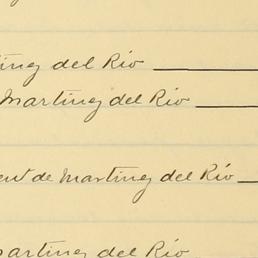 del Río
Martinez del Río
de Martinez del Río
Martinez del Río